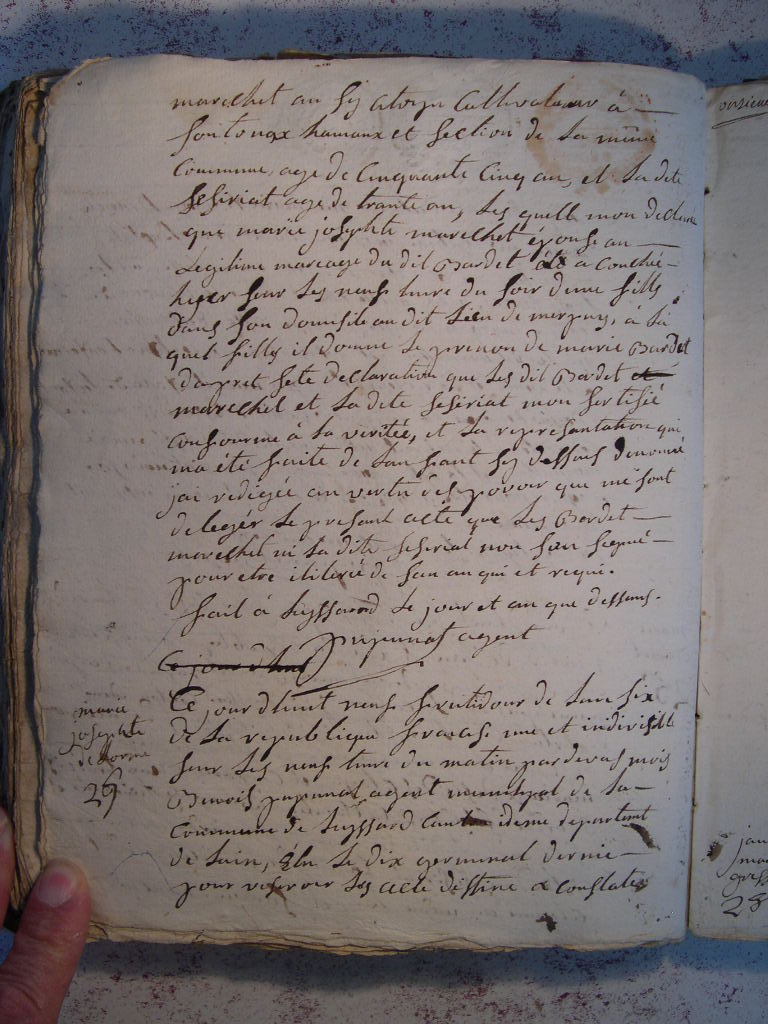 marechet au sy atoyn Cultivateur à
fontonax hamaux et section de la même
Commune, age de Cinquante Cinq an, et la dite
sesiriat age de trante an, les quell mon declaré
que marie josephte marechet épouse an
Legitime mareage du dit Bardet a Couchée
hyer sur les neuf hure du soir dune fills
dans son domisile au dit lieu de merpuy, à la
quel fills il donne le prenon de marie Bardet
dapret sete declaration que les dit Bardet
marechet et la dite sesiriat mon sertifié
Confourme à la veritée, et la representation qui
ma été faite de lanfant sy dessus denomé
jai redigée an vertu des povoir que me sont
delegér le presant acte que les Bardet
marechet ni la dite sesiriat non seu signé
pour etre iliterié de san anqui et requi.
fait à Luyssard le jour et an que dessus.
pupunat agent
Ce jour dhui
marie
josephte
delorme
26
Ce jour dhuit neuf fruitidour de lan six
de la republique francase une et indivisible
sur les neuf hure du matin pardevas mois
Benois pupunat agent municipal de la
Commune de Luyssard ideme departemt
de lain, Élu le dix germinal dernie
pour reservoir les acte destiné a constater
28